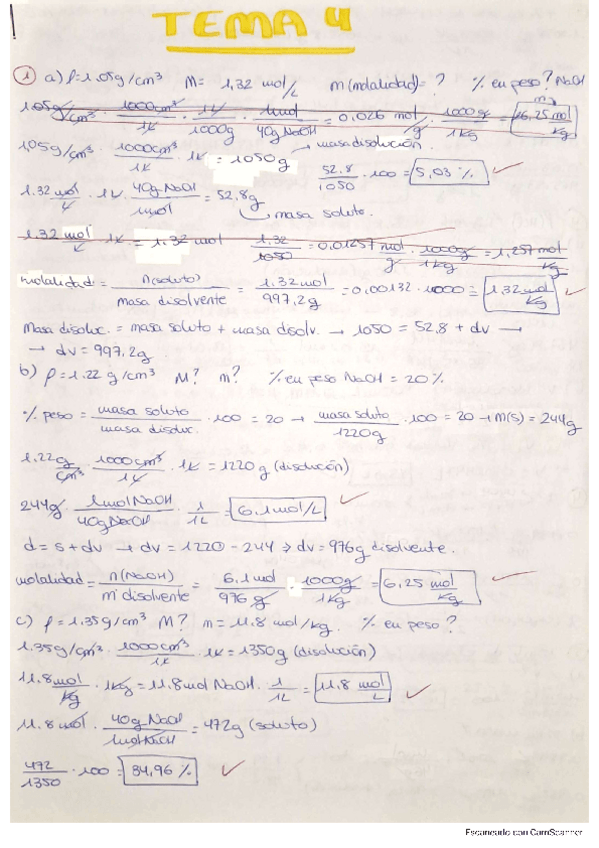 TEMA 4
① a) ρ=1.05g/cm³ M= 1,32 mol/L m(molalidad)= ? % en peso? NaOH
1.05g/cm³ · 1000cm³/1L · 1L/1000g · 1mol/40g NaOH = 0,026 mol/g · 1000g/1Kg = 26,25 mol/Kg
1.05g/cm³ · 1000cm³/1L · 1L = 1050g → masa disolución. 52.8/1050 · 100 = 5,03 %
1.32 mol/L · 1L · 40g NaOH/1mol = 52,8g
masa soluto.
1.32 mol/L · 1L = 1.32 mol 1.32/1050 = 0,01257 mol/g · 1000g/1Kg = 1,257 mol/Kg
molalidad = n(soluto)/masa disolvente = 1.32mol/997,2g = 0,00132 · 1000 = 1,32 mol/Kg
Masa disoluc. = masa soluto + masa disolv. → 1050 = 52.8 + dv →
→ dv = 997,2g
b) ρ=1.22 g/cm³ M? m? % en peso NaOH = 20%
% peso = masa soluto/masa disoluc. · 100 = 20 → masa soluto/1220g · 100 = 20 → M(s) = 244g
1.22g/cm³ · 1000cm³/1L · 1L = 1220 g (disolución)
244g · 1mol NaOH/40g NaOH · 1/1L = 6.1 mol/L
d = s + dv → dv = 1220 - 244 ⇒ dv = 976g disolvente.
molalidad = n(NaOH)/m disolvente = 6,1 mol/976 g · 1000g/1Kg = 6,25 mol/Kg
c) ρ=1.35g/cm³ M? m = 11.8 mol/kg. % en peso?
1.35g/cm³ · 1000cm³/1L · 1L = 1350g (disolución)
11.8 mol/Kg · 1Kg = 11.8mol NaOH · 1/1L = 11,8 mol/L
11.8 mol · 40g NaOH/1mol NaOH = 472g (soluto)
472/1350 · 100 = 34,96 %
Escaneado con CamScanner